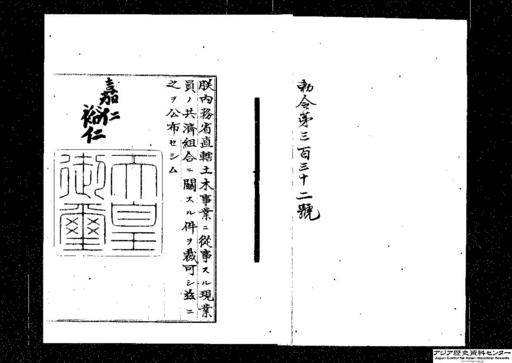 勅令第三百三十二號
朕内務省直轄土木事業ニ從事スル現業
員ノ共濟組合ニ關スル件ヲ裁可シ茲ニ
之ヲ公布セシム
嘉仁
裕仁
天皇
御璽
アジア歴史資料センター
Japan Center for Asian Historical Records